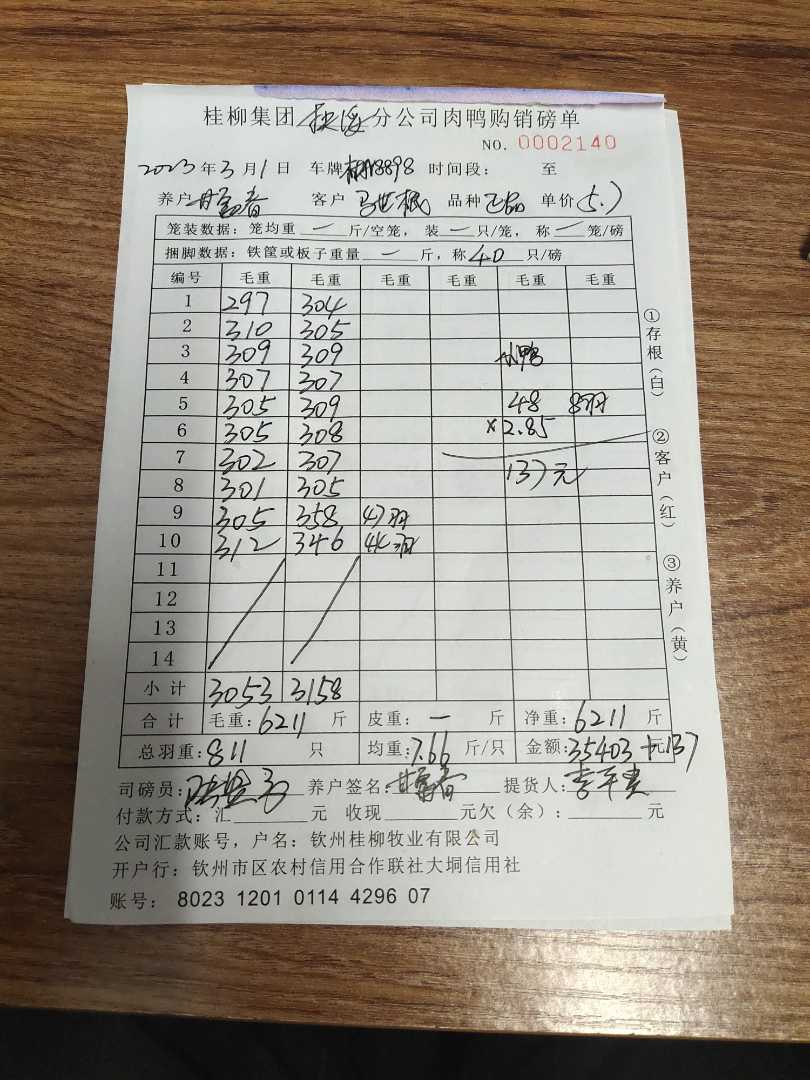 桂柳集团 钦海 分公司肉鸭购销磅单
NO. 0002140
2023年3月1日 车牌 8898 时间段: 至
养户 甘富春 客户 马世根 品种 正品 单价 5.7
笼装数据:笼均重 一 斤/空笼,装 一 只/笼,称 一 笼/磅
捆脚数据:铁筐或板子重量 一 斤,称 40 只/磅
编号 毛重 毛重 毛重 毛重 毛重 毛重
1 297 304
2 310 305
3 309 309 小鸭
4 307 307
5 305 309 48 8羽
6 305 308 ×2.85
7 302 307
8 301 305 137元
9 305 358 47羽
10 312 346 44羽
11
12
13
14
小计 3053 3158
合计 毛重:6211 斤 皮重:一 斤 净重:6211 斤
总羽重:811 只 均重:7.66 斤/只 金额:35403 元+137
司磅员: 养户签名:甘富春 提货人:李平贵
付款方式:汇 元 收现 元欠(余): 元
公司汇款账号,户名:钦州桂柳牧业有限公司
开户行:钦州市区农村信用合作联社大垌信用社
账号: 8023 1201 0114 4296 07
①存根(白)
②客户(红)
③养户(黄)